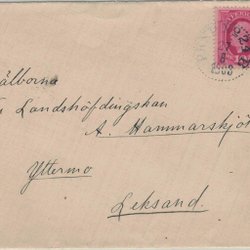 älborna
Landshöfdingskan
A. Hammarskjö
Yttermo
Leksand.